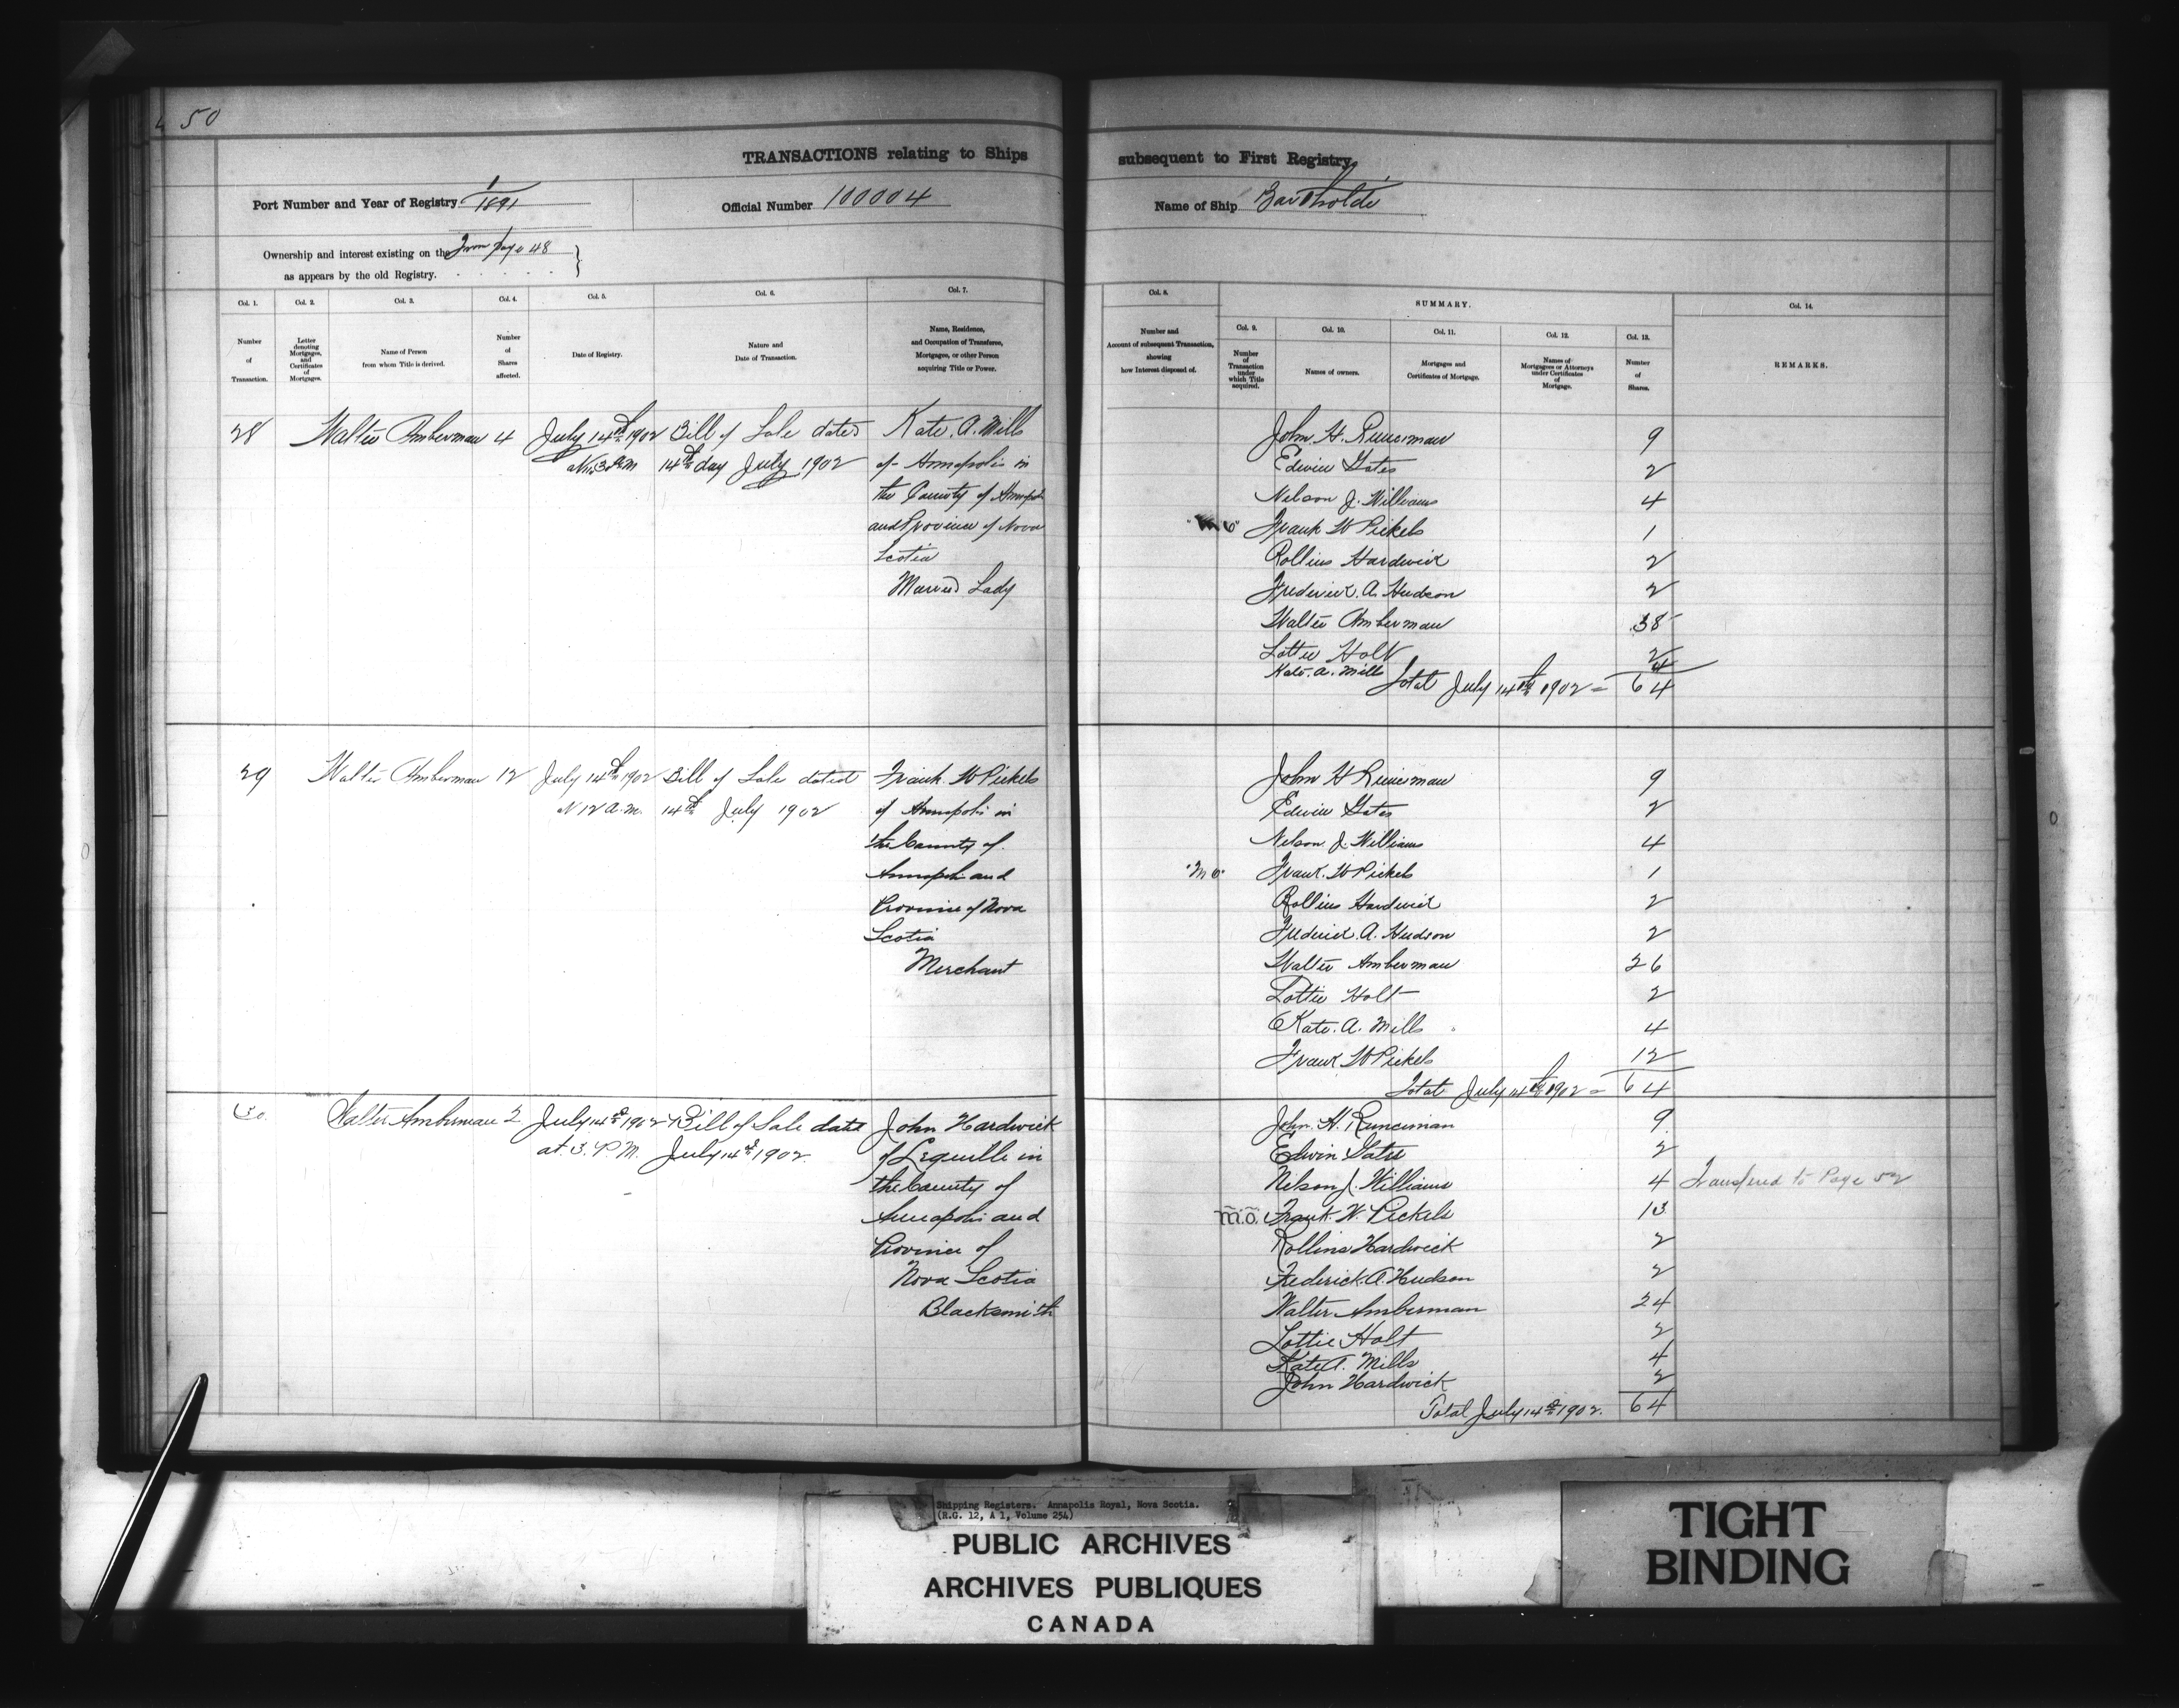 50
TRANSACTIONS relating to Ships subsequent to First Registry.
Port Number and Year of Registry 1/1891 Official Number 100004 Name of Ship
Ownership and interest existing on the From page 48
as appears by the old Registry.
Col. 1. Col. 2. Col. 3. Col. 4. Col. 5. Col. 6. Col. 7. Col. 8. SUMMARY. Col. 14.
Col. 9. Col. 10. Col. 11. Col. 12. Col. 13.
Number of Transaction.
Letter denoting Mortgages, and Certificates of Mortgages.
Name of Person from whom Title is derived.
Number of Shares affected.
Date of Registry.
Nature and Date of Transaction.
Name, Residence, and Occupation of Transferee, Mortgagee, or other Person acquiring Title or Power.
Number and Account of subsequent Transaction, showing how Interest disposed of.
Number of Transaction under which Title acquired.
Names of owners.
Mortgages and Certificates of Mortgage.
Names of Mortgagees or Attorneys under Certificates of Mortgage.
Number of Shares.
REMARKS.
28 Walter Amberman 4 July 14th 1902 Bill of Sale dated Kate. A. Mills
14th day July 1902 of Annapolis in
the County of
and Province of Nova
Scotia
Married Lady
John. H. Runciman 9
Edwin Gates 2
Nelson J. Williams 4
Frank W Pickels 1
Rollins Hardwick 2
Frederick. A. Hudson 2
Walter Amberman 38
Lottie Holt 2
Kate. A. Mills 4
Total July 14th 1902 = 64
29 Walter Amberman 12 July 14th 1902 Bill of Sale dated Frank. W Pickels
12 a.m. 14th July 1902 of Annapolis in
the County of
Annapolis and
Province of Nova
Scotia
Merchant
John H Runciman 9
Edwin Gates 2
Nelson. J. Williams 4
"M O" Frank. W Pickels 1
Rollins Hardwick 2
Frederick. A. Hudson 2
Walter Amberman 26
Lottie Holt 2
Kate. A. Mills 4
Frank W Pickels 12
Total July 14th 1902 = 64
30 Walter Amberman 2 July 14th 1902 Bill of Sale date John Hardwick
at. 3. P.M. July 14th 1902. of Lequille in
the County of
Annapolis and
Province of
Nova Scotia
Blacksmith
John. H. Runciman 9
Edwin Gates 2
Nelson J. Williams 4 Transferred to Page 52
M.O. Frank. W. Pickels 13
Rollins Hardwick 2
Frederick. A. Hudson 2
Walter Amberman 24
Lottie Holt 2
Kate A. Mills 4
John Hardwick 2
Total July 14th 1902. 64
Shipping Registers. Annapolis Royal, Nova Scotia.
(R.G. 12, A 1, Volume 254)
PUBLIC ARCHIVES
ARCHIVES PUBLIQUES
CANADA
TIGHT
BINDING